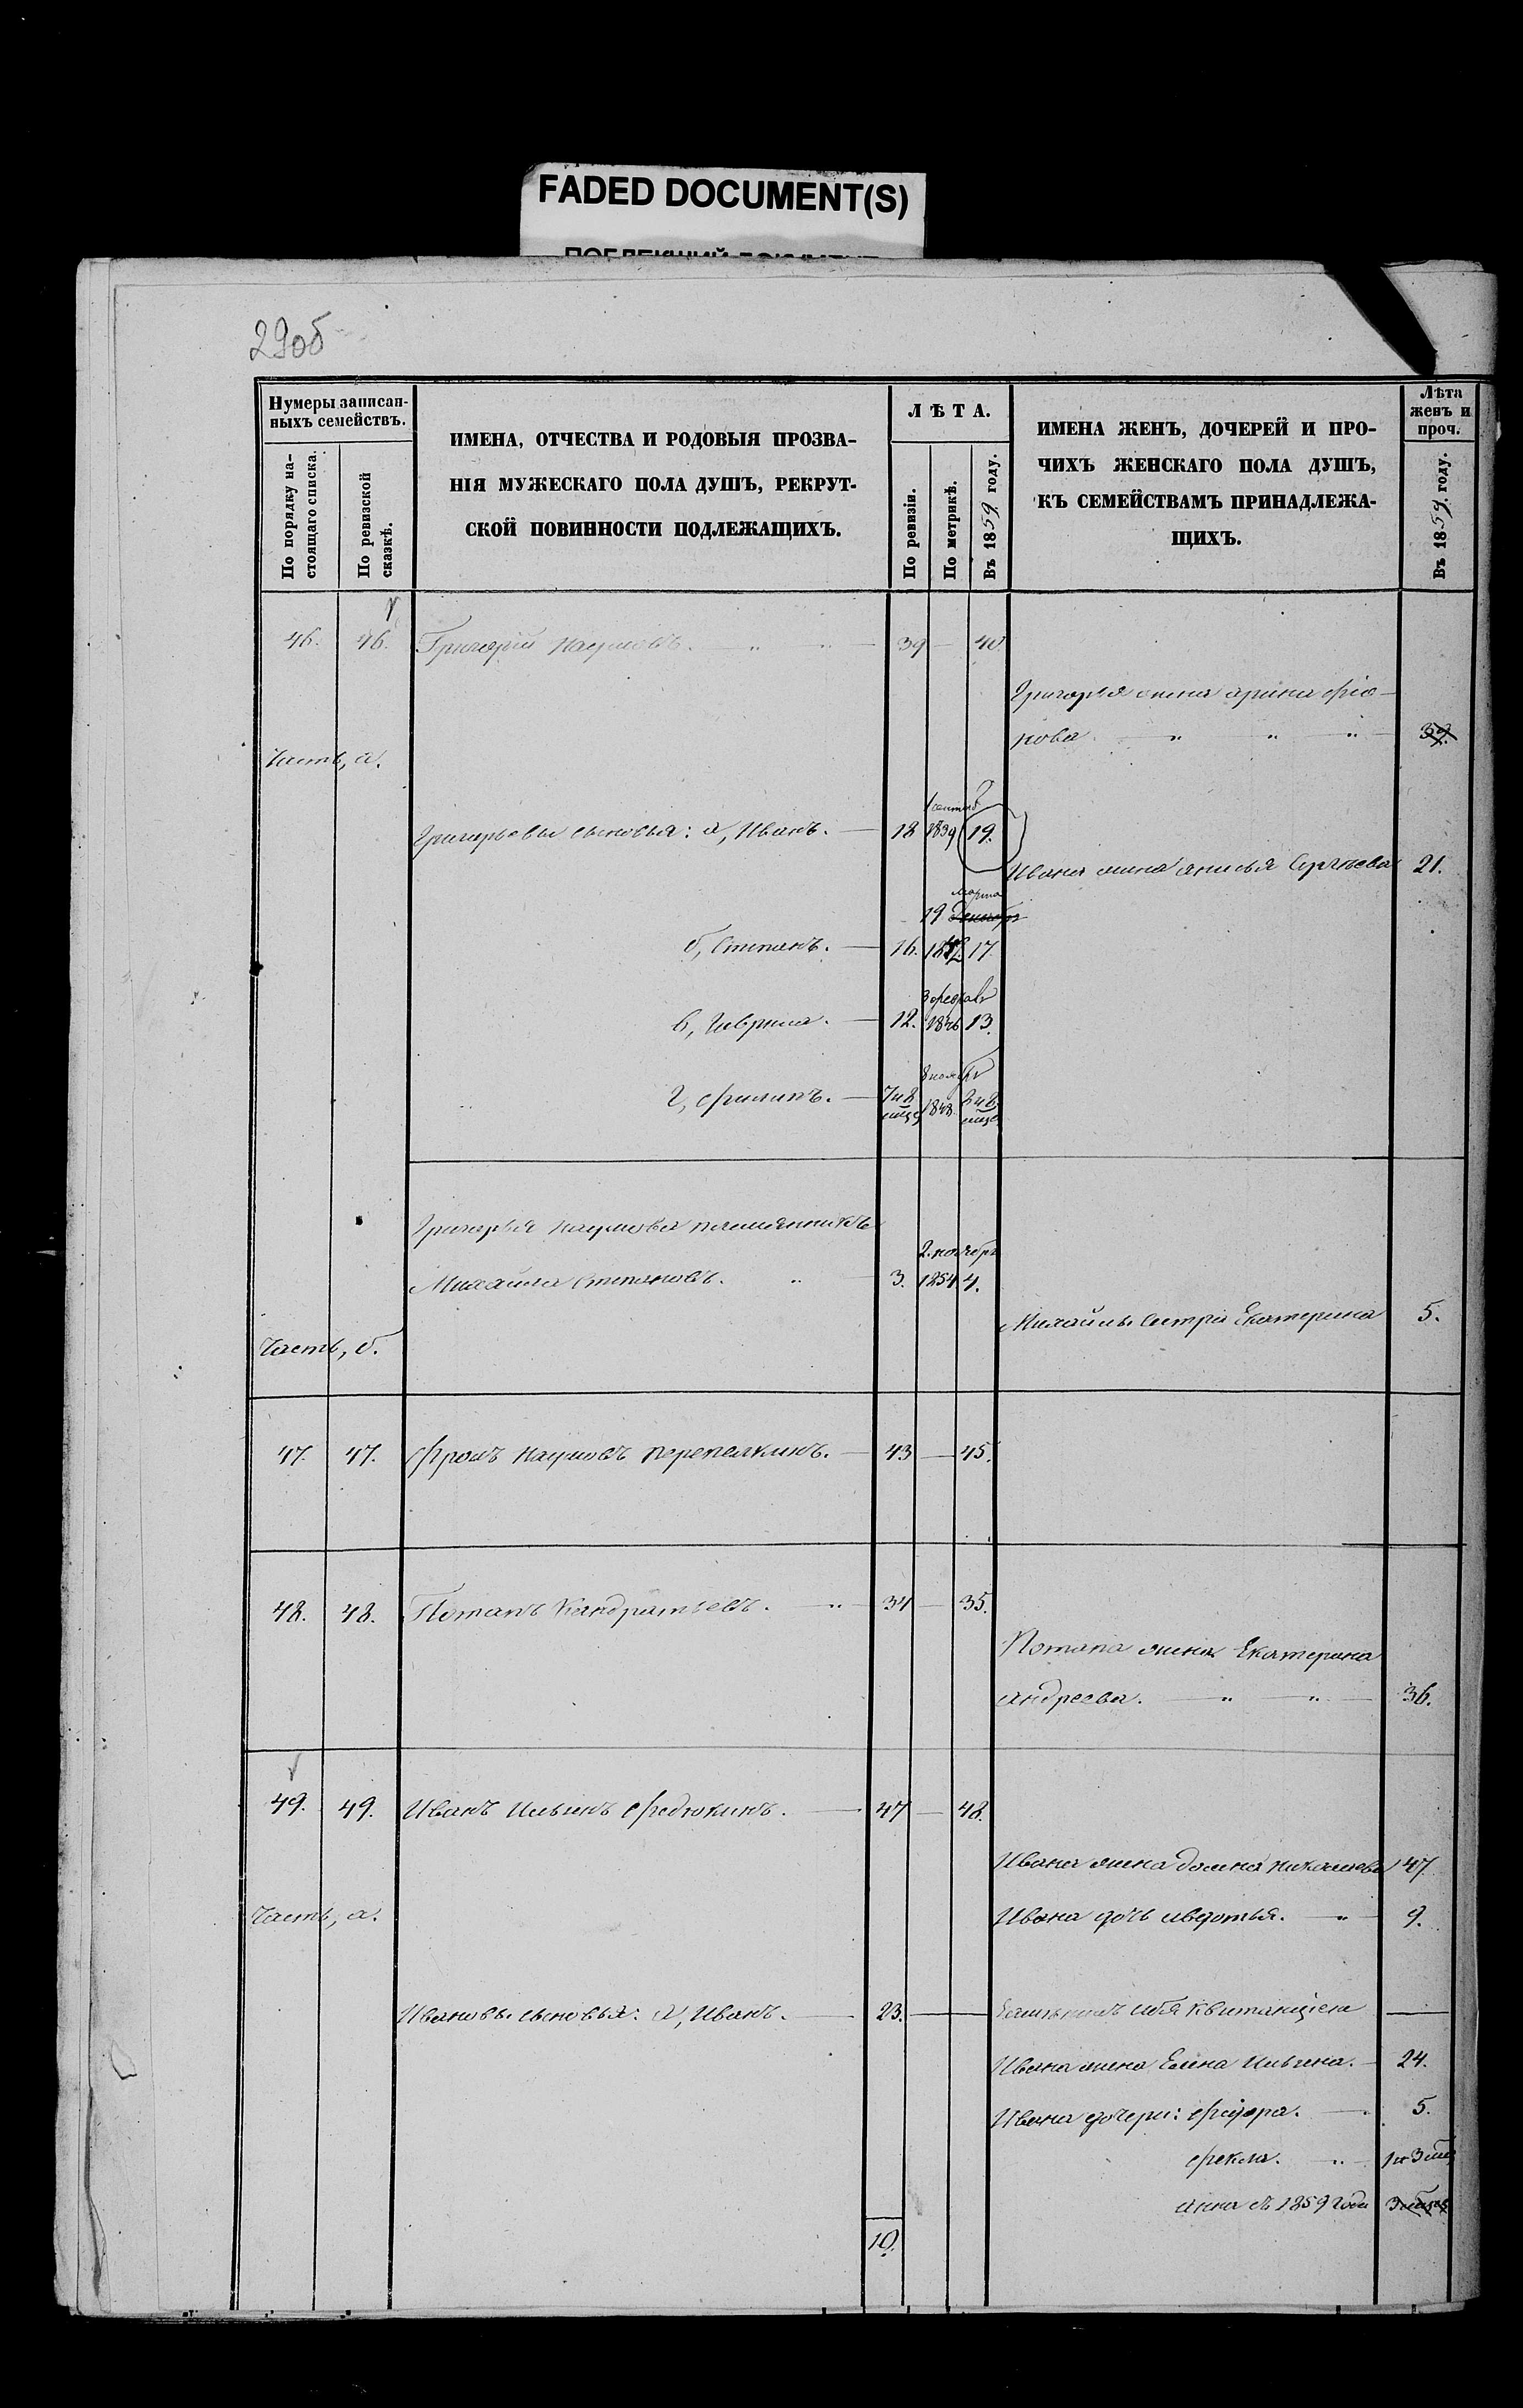 FADED DOCUMENT(S)
29об
Нумеры записан-
ныхъ семействъ.
По порядку на-
стоящаго списка.
По ревизской
сказкѣ.
ИМЕНА, ОТЧЕСТВА И РОДОВЫЯ ПРОЗВА-
НІЯ МУЖЕСКАГО ПОЛА ДУШЪ, РЕКРУТ-
СКОЙ ПОВИННОСТИ ПОДЛЕЖАЩИХЪ.
ЛѢТА.
По ревизіи.
По метрикѣ.
Въ 1859 году.
ИМЕНА ЖЕНЪ, ДОЧЕРЕЙ И ПРО-
ЧИХЪ ЖЕНСКАГО ПОЛА ДУШЪ,
КЪ СЕМЕЙСТВАМЪ ПРИНАДЛЕЖА-
ЩИХЪ.
Лѣта
женъ и
проч.
Въ 1859 году.
46. 46. Григорій Наумовъ. 39 40
Григорья жена Арина
39.
Часть, а.
1 сентяб.
Григорьевы сыновья: а, Иванъ. 18 1839 19.
Ивана жена Анисья Сергѣева 21.
марта
19 декабря
б, Степанъ. 16. 1842 17.
3 февраля
в, Гаврила. 12. 1846 13.
8 ноября
г, Филипъ. 7 и 8 1848
Григорья Наумова племянникъ
2. ноября
Михайла Степановъ. 3. 1854 4.
Михайлы сестра Екатерина 5.
Часть, б.
47. 47. Фролъ Наумовъ Перепелкинъ. 43 45.
48. 48. Потапъ Кандратьевъ. 34 35.
Потапа жена Екатерина
Андреева. 36.
49. 49. Иванъ Ильинъ Федюкинъ. 47 48.
Ивана жена Домна Николаева 47.
Часть, а.
Ивана дочь Авдотья. 9.
Ивановы сыновья: а, Иванъ. 23. себя квитанціею
Ивана жена Елена Ильина. 24.
Ивана дочери: 5.
Фекла. 1 и 3 мѣс
Анна съ 1859 года 3 мѣсяц
10.